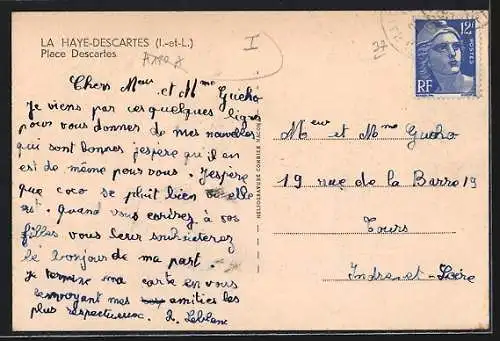 LA HAYE-DESCARTES (I.-et-L.)
Place Descartes
I
Chers Meur et Mme Gueho
Je viens par ces quelques lignes
pour vous donner de mes nouvelles
qui sont bonnes j'espère qu'il en
est de même pour vous. J'espère
que coco se plait bien où elle
est. Quand vous écrirez à vos
filles vous leur souhaiterez
le bonjour de ma part.
Je termine ma carte en vous
envoyant mes amitiés les
plus respectueux. R. Leblanc
HÉLIOGRAVURE COMBIER MACON
12F
POSTES
RF
Meur et Mme Gueho
19 rue de la Barre 19
Tours
Indre-et-Loire